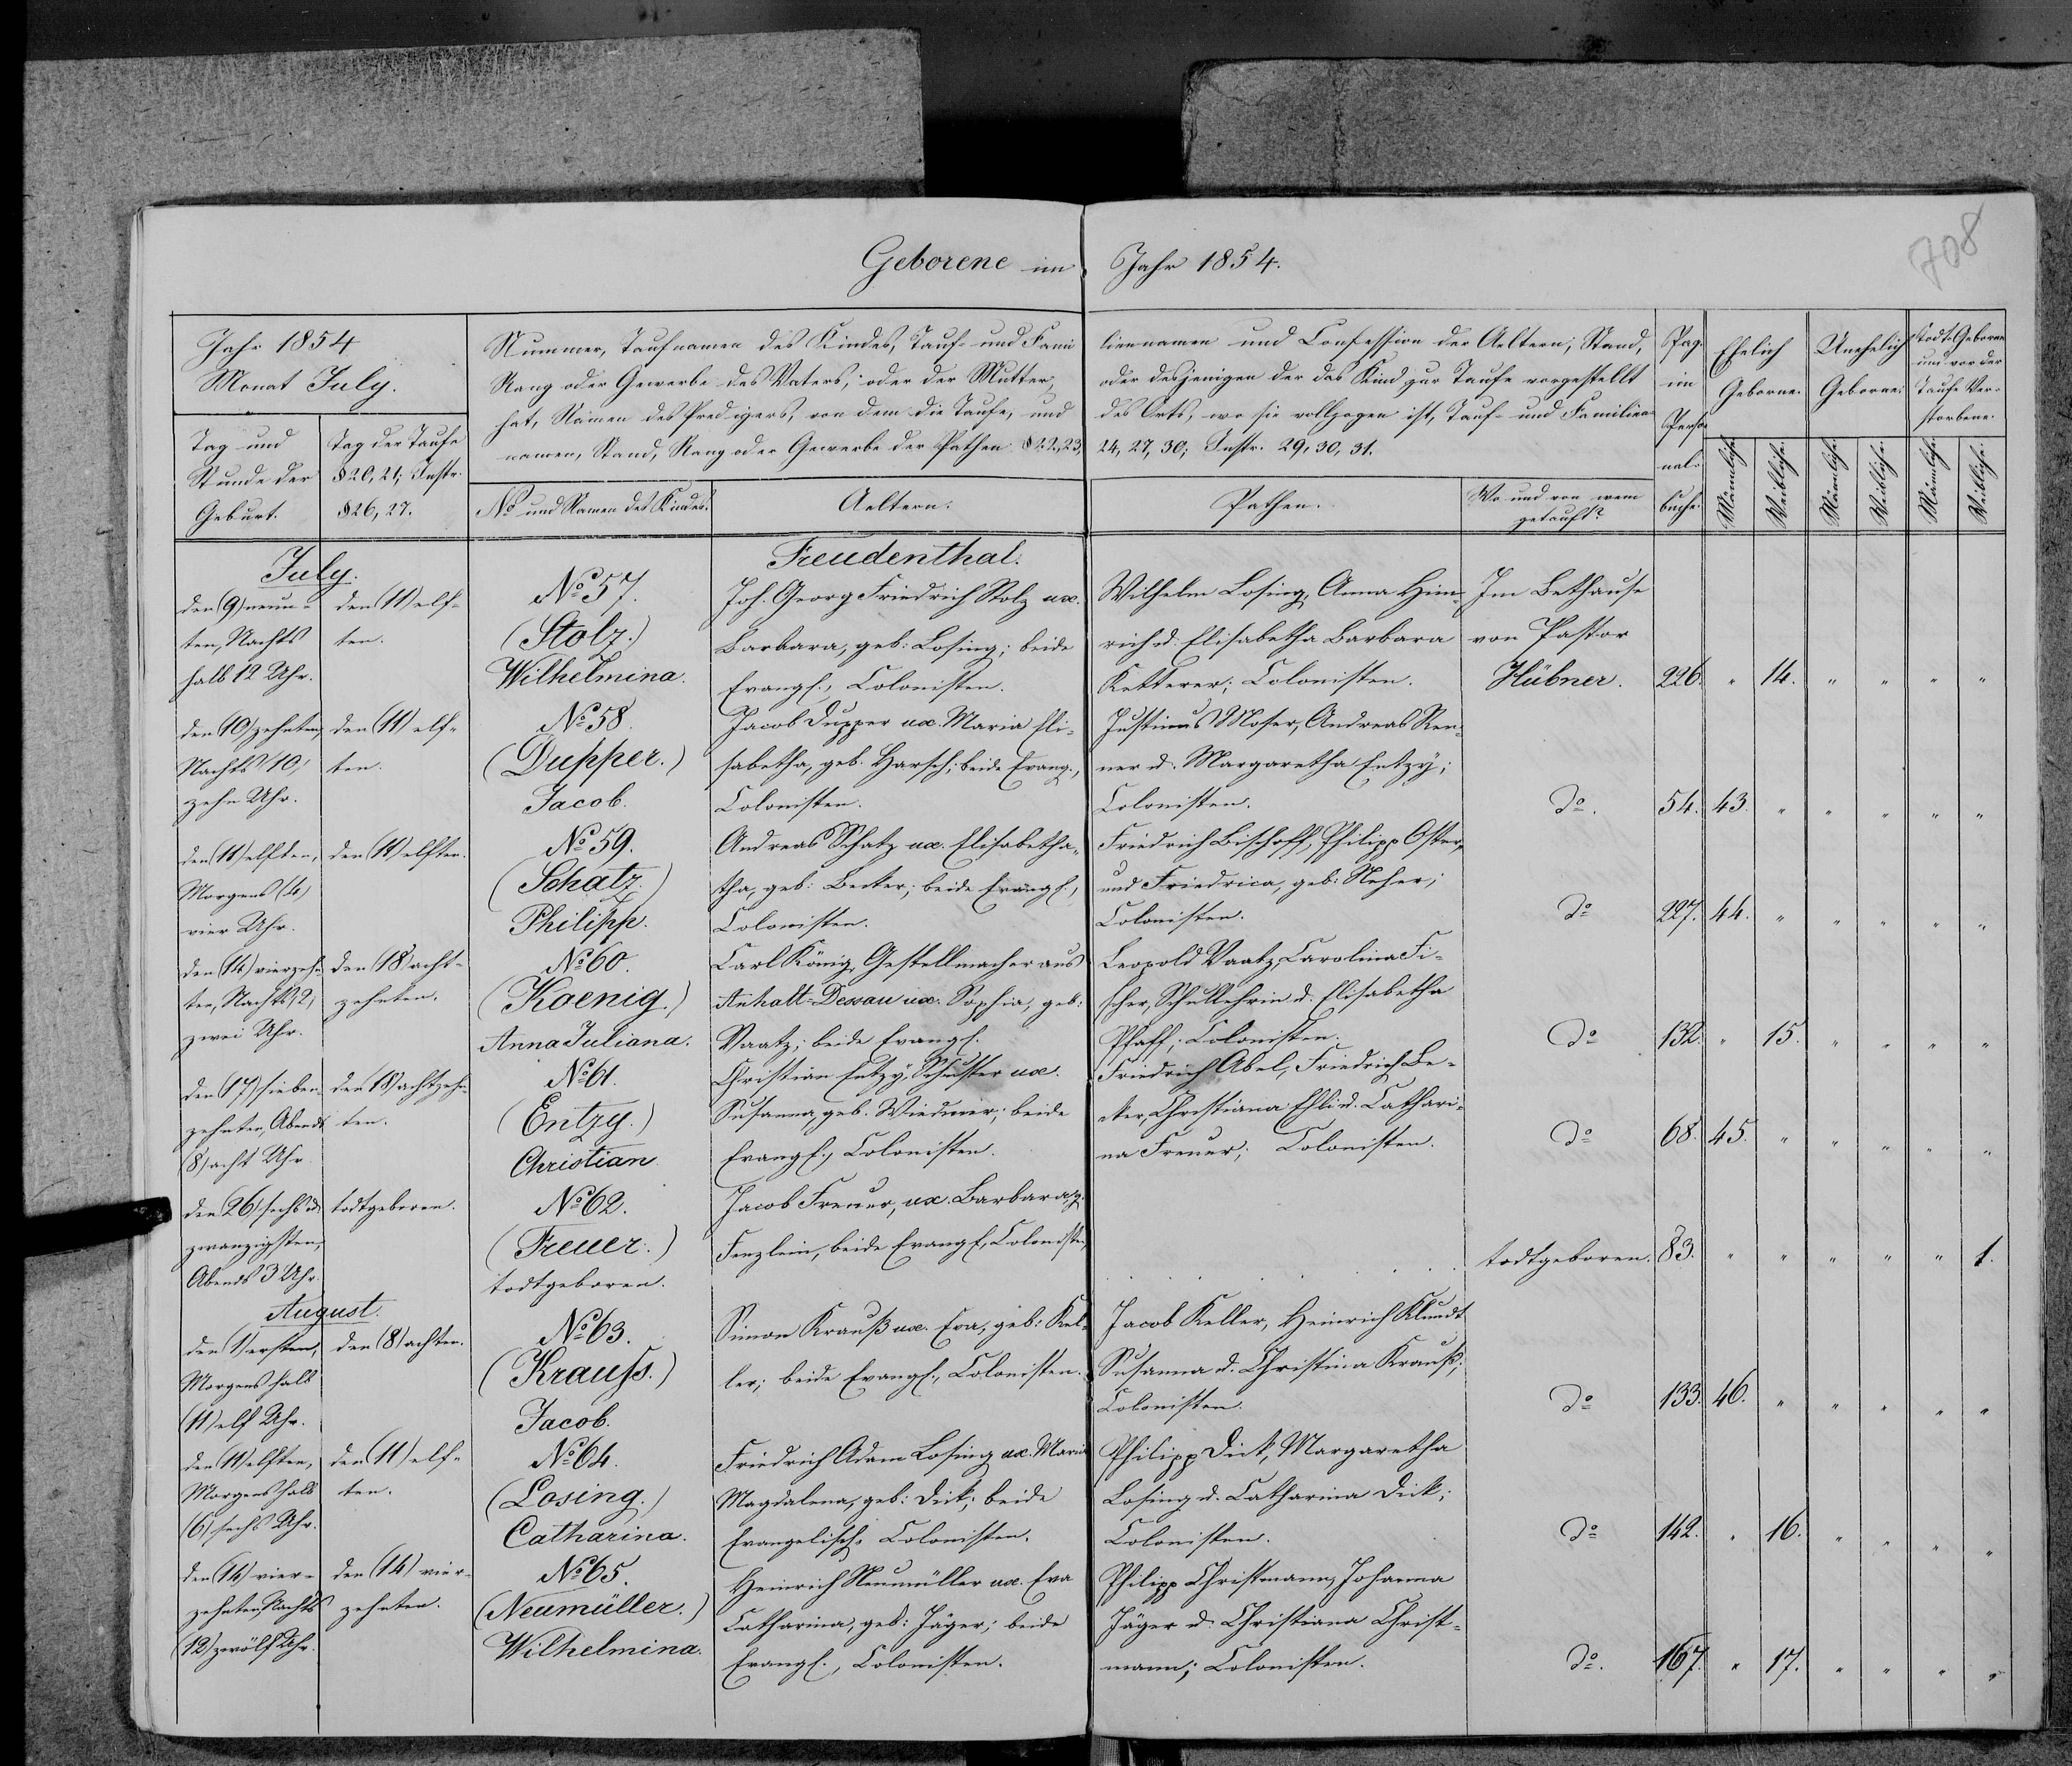 708
Geborene im Jahr 1854.
Jahr 1854
Monat July.
Tag und
Stunde der
Geburt.
Tag der Taufe
§ 20, 21; Instr.
§ 26, 27.
Nummer, Taufnamen des Kindes, Tauf- und Fami liennamen und Confession der Aeltern, Stand,
Rang oder Gewerbe des Vaters, oder der Mutter, oder desjenigen der das Kind zur Taufe vorgestellt
hat, Namen des Predigers, von dem die Taufe, und des Orts, wo sie vollzogen ist, Tauf- und Familien-
namen, Stand, Rang oder Gewerbe der Pathen § 22, 23, 24, 27, 30; Instr. 29, 30, 31.
No und Namen des Kindes.
Aeltern.
Pathen.
Wo und von wem
getauft?
Pag.
im
Perso
nal-
buche.
Ehelich
Geborne.
Unehelich
Geborne.
Todt-Geborene
und vor der
Taufe Ver-
storbene.
Männliche.
Weibliche.
Männliche.
Weibliche.
Männliche.
Weibliche.
Freudenthal.
July.
den (9) neun-
ten, Nachts
halb 12 Uhr.
den (11) elf-
ten.
No 57.
(Stolz.)
Wilhelmina.
Joh. Georg Friedrich Stolz ux.
Barbara, geb: Losing; beide
Evangl., Colonisten.
Wilhelm Losing, Anna Him-
rich u. Elisabetha Barbara
Ketterer; Colonisten.
Im Bethause
von Pastor
Hübner.
226. " 14. " " " "
den 10) zehnten,
Nachts 10,
zehn Uhr.
den (11) elf-
ten.
No 58.
(Dupper.)
Jacob.
Jacob Dupper ux. Maria Eli-
sabetha, geb. Harsch; beide Evang.,
Colonisten.
Justinus Moser, Andreas Ren-
ner u. Margaretha Entzy;
Colonisten.
do. 54. 43. " " " " "
den (11) elften,
Morgens (4)
vier Uhr.
den (11) elften.
No 59.
(Schatz.)
Philipp.
Andreas Schatz ux. Elisabetha-
tha, geb: Becker; beide Evangl.,
Colonisten.
Friedrich Bischoff, Philipp Oster,
und Friedrica, geb: Neher;
Colonisten.
do 227. 44. " " " " "
den (14) vierzehn
ten, Nachts, 2,
zwei Uhr.
den (18) acht-
zehnten.
No 60.
(Koenig.)
Anna Juliana.
Carl König, Gestellmacher aus
Anhalt-Dessau ux. Sophia, geb:
Vaatz; beide Evangl.
Leopold Vaatz, Carolina Fi-
scher, Schullehrin u. Elisabetha
Pfaff; Colonisten.
do 132. " 15. " " " "
den (17) sieben-
zehnten, Abends
(8) acht Uhr.
den (18) achtzehn-
ten.
No 61.
(Entzy.)
Christian.
Christian Entzy, Schuster ux.
Susanna, geb. Wiedmer; beide
Evangl., Colonisten.
Friedrich Abel, Friedrich Be-
cker, Christiana Ehli u. Cathari-
na Freuer; Colonisten.
do 68. 45. " " " " "
den 26) sechs u.
zwanzigsten,
Abends 3 Uhr.
todtgeboren.
No 62.
(Freuer.)
todtgeboren.
Jacob Freuer, ux. Barbara, g.
Fenzlein, beide Evangl., Colonisten,
todtgeboren. 83. " " " " " 1.
August.
den 1) ersten,
Morgens halb
(11) elf Uhr.
den (8) achten.
No 63.
(Krauss.)
Jacob.
Simon Krauß ux. Eva, geb: Kel-
ler; beide Evangl., Colonisten.
Jacob Keller, Heinrich Klundt
Susanna u. Christina Krauß;
Colonisten.
do 133. 46. " " " " "
den 11) elften,
Morgens halb
(6) sechs Uhr.
den (11) elf-
ten.
No 64.
(Losing.)
Catharina.
Friedrich Adam Losing ux. Maria
Magdalena, geb: Dick; beide
Evangelisch, Colonisten.
Philipp Dick, Margaretha
Losing u. Catharina Dick;
Colonisten.
do 142. " 16. " " " "
den (14) vier-
zehnten, Nachts
(12) zwölf Uhr.
den (14) vier-
zehnten.
No 65.
(Neumüller.)
Wilhelmina.
Heinrich Neumüller ux. Eva
Catharina, geb: Jäger; beide
Evangl., Colonisten.
Philipp Christmann, Johanna
Jäger u. Christiana Christ-
mann; Colonisten.
do. 167. " 17. " " " "